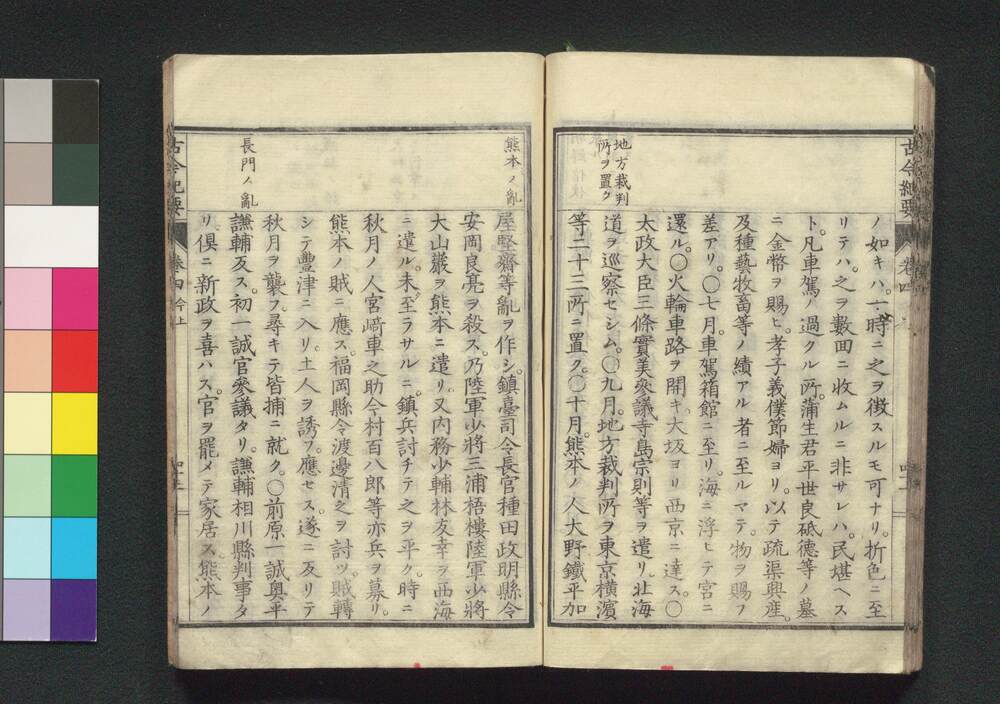 古今紀要
卷四
地方裁判
所ヲ置ク
ノ如キハ。一時ニ之ヲ徴スルモ可ナリ。折色ニ至
リテハ。之ヲ數回ニ收ムルニ非サレハ。民堪ヘス
ト。凡車駕ノ過クル所。蒲生君平世良砥德等ノ墓
ニ金幣ヲ賜ヒ。孝子義僕節婦ヨリ。以テ疏渠興産。
及種藝牧畜等ノ績アル者ニ至ルマテ。物ヲ賜フ
差アリ。〇七月。車駕箱館ニ至リ。海ニ浮ヒテ宮ニ
還ル。〇火輪車路ヲ開キ。大坂ヨリ西京ニ達ス。〇
太政大臣三條實美參議寺島宗則等ヲ遣リ。北海
道ヲ巡察セシム。〇九月。地方裁判所ヲ東京橫濱
等二十三所ニ置ク。〇十月。熊本ノ人大野鐵平加
熊本ノ亂
長門ノ亂
屋堅齋等亂ヲ作シ。鎮臺司令長官種田政明縣令
安岡良亮ヲ殺ス。乃陸軍少將三浦梧樓陸軍少將
大山巖ヲ熊本ニ遣リ。又內務少輔林友幸ヲ西海
ニ遣ル。未至ラサルニ。鎮兵討チテ之ヲ平ク。時ニ
秋月ノ人宮﨑車之助今村百八郎等亦兵ヲ募リ。
熊本ノ賊ニ應ス。福岡縣令渡邊清之ヲ討ツ。賊轉
シテ豐津ニ入リ。土人ヲ誘フ。應セス。遂ニ反リテ
秋月ヲ襲フ。尋キテ皆捕ニ就ク。〇前原一誠奧平
謙輔反ス。初一誠官參議タリ。謙輔相川縣判事タ
リ。俱ニ新政ヲ喜ハス。官ヲ罷メテ家居ス。熊本ノ
古今紀要
卷四 今上